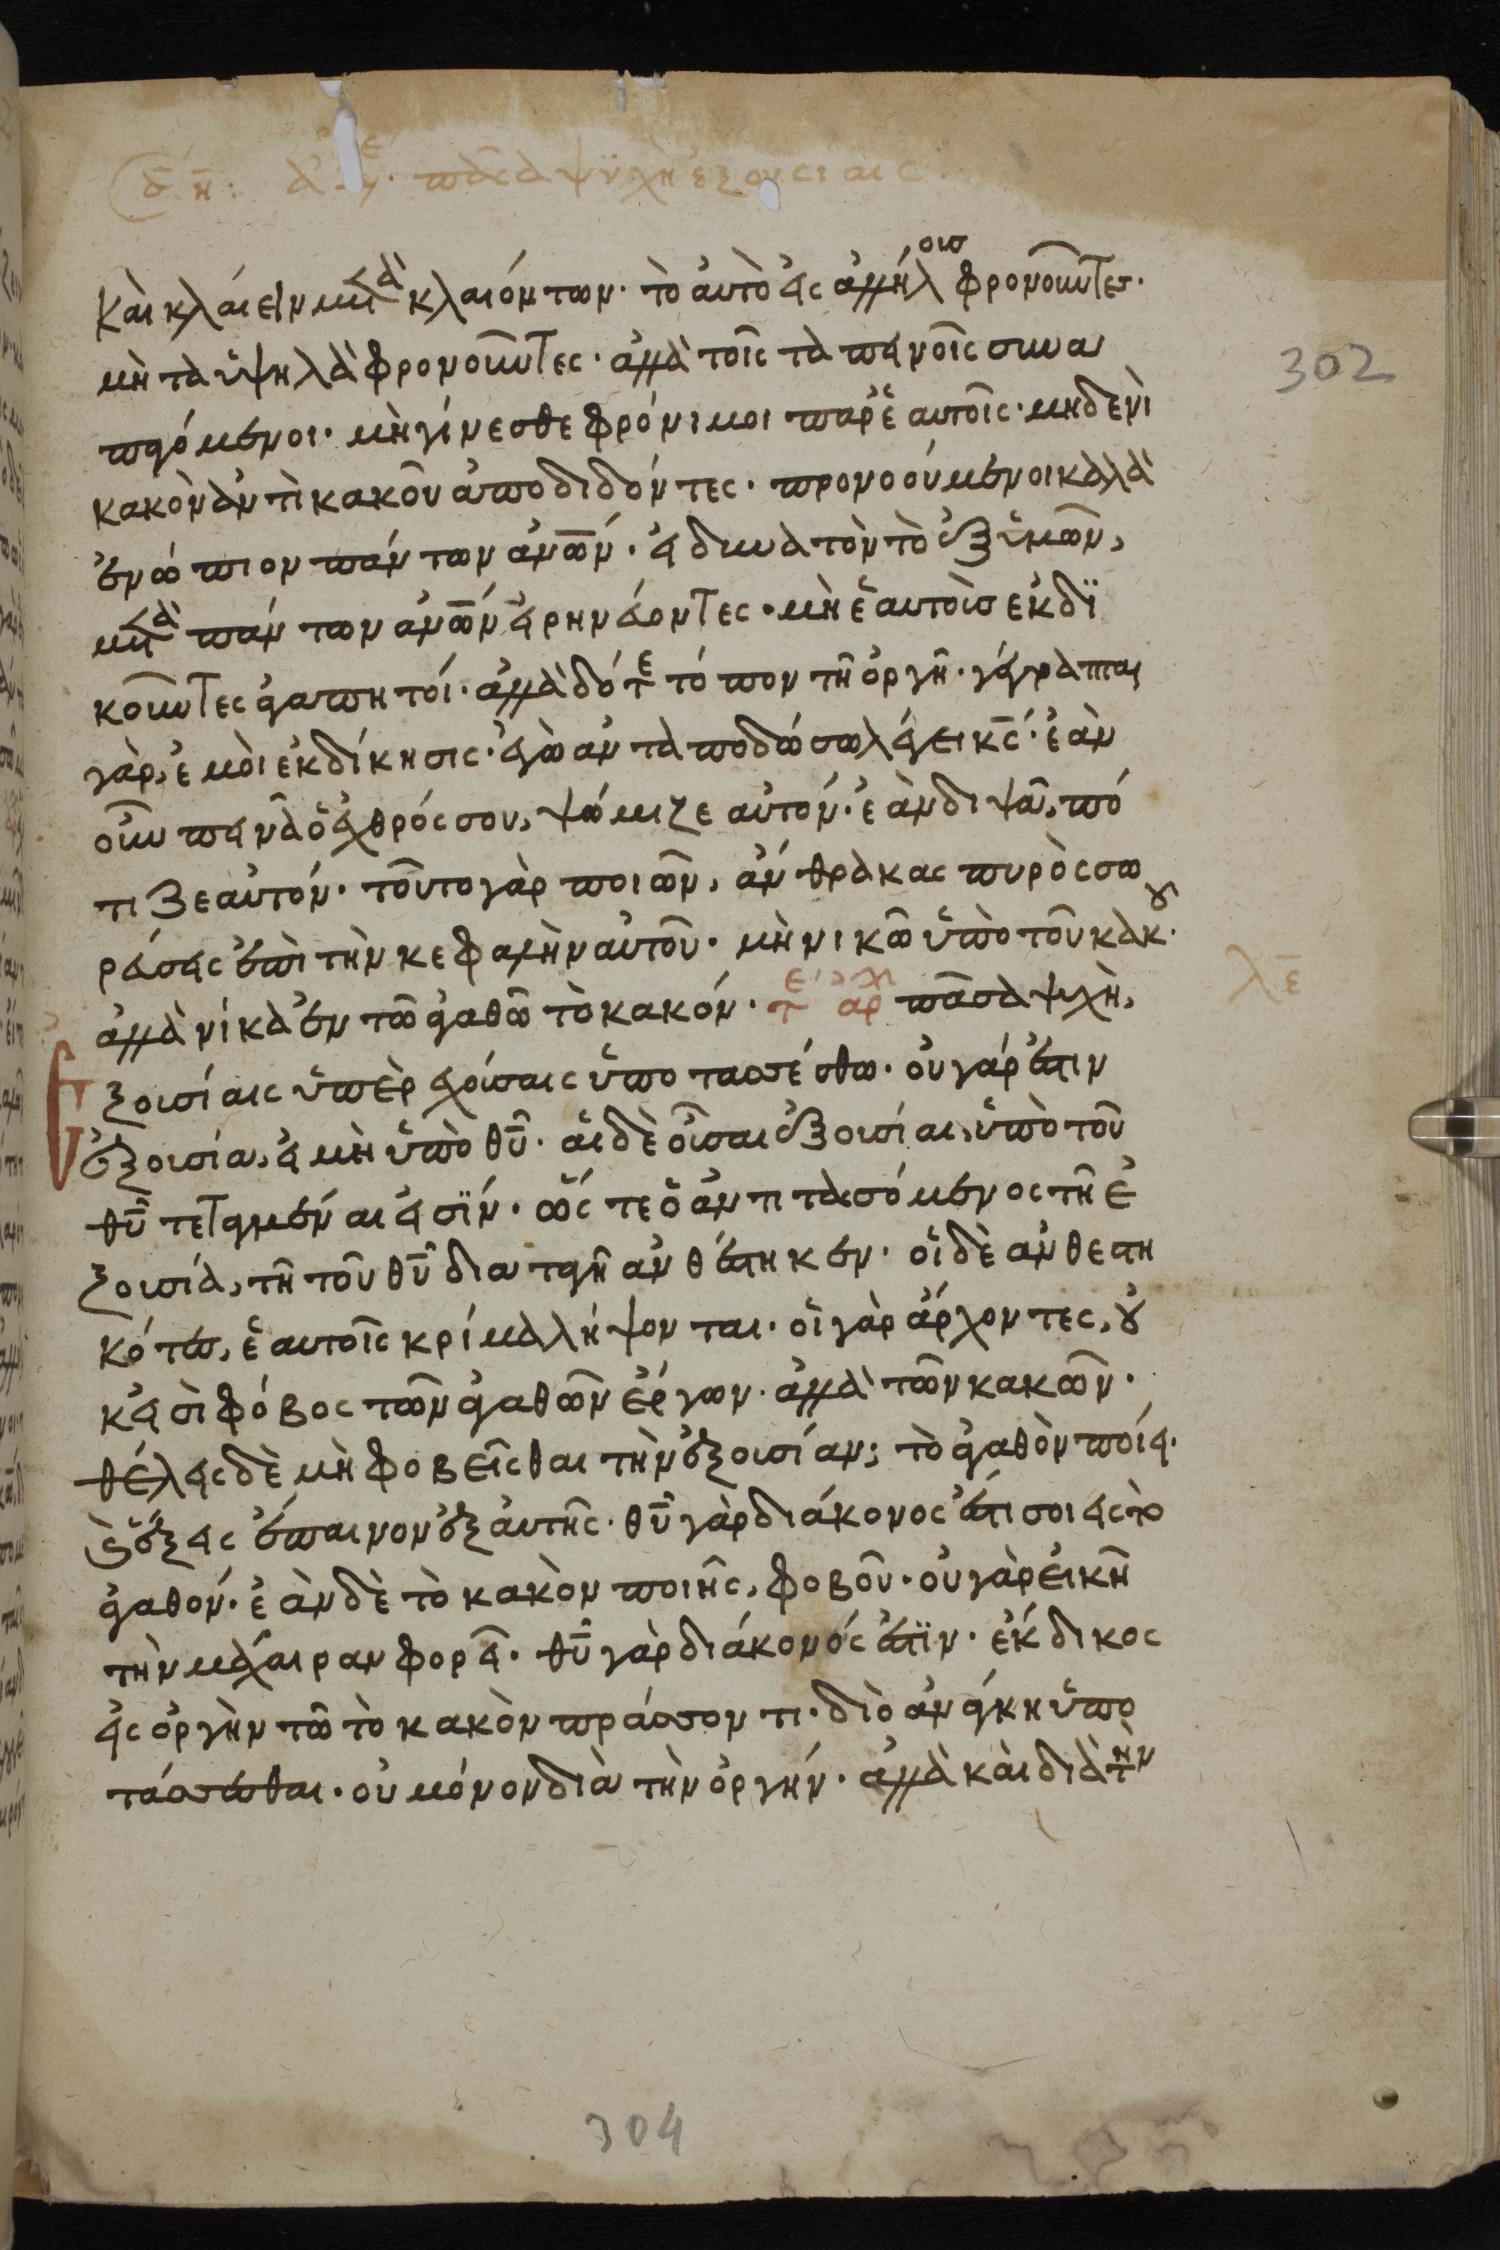 πᾶσα ψϋχὴ ἐξουσίαις
καὶ κλαίειν μετὰ κλαιόντων· τὸ αὐτὸ εἰς ἀλλήλοις φρονοῦντες·
302
μὴ τὰ ὑψηλὰ φρονοῦντες· ἀλλὰ τοῖς ταπεινοῖς συνα
παγόμενοι· μὴ γίνεσθε φρόνιμοι παρ' ἑαυτοῖς· μηδενὶ
κακὸν ἀντὶ κακοῦ ἀποδιδόντες· προνοούμενοι καλὰ
ἐνώπιον πάντων ἀνων· εἰ δυνατὸν τὸ ἐξ ὑμῶν,
μετὰ πάντων ἀνων εἰρηνεύοντες· μὴ ἑαυτοὺσ ἐκδϊ
κοῦντες ἀγαπητοί· ἀλλὰ δότε τόπον τῆ ὀργῆ· γέγραπται
γὰρ, ἐμοὶ ἐκδίκησις· ἐγὼ ἀνταποδώσω λέγει κς· ἐὰν
οὖν πεινᾶ ὁ ἐχθρός σου, ψώμιζε αὐτόν· ἐὰν διψᾶ, πό
τιζε αὐτόν· τοῦτο γὰρ ποιῶν, ἄνθρακας πυρὸς σω
ρεύσεις ἐπὶ τὴν κεφαλὴν αὐτοῦ· μὴ νικῶ ὑπὸ τοῦ κακοῦ·
ἀλλὰ νίκα ἐν τῶ ἀγαθῶ τὸ κακόν· τε αρχ πᾶσα ψυχὴ,
λε
ἐξουσίαις ὑπερεχούσαις ὑποτασσέσθω· οὐ γάρ ἐστιν
ἐξουσία, εἰ μὴ ὑπὸ θυ· αἱ δὲ οὖσαι ἐξουσίαι, ὑπὸ τοῦ
θυ τεταγμέναι εἰσϊν· ὥστε ὁ ἀντιτασσόμενος τῆ ἐ
ξουσία, τῆ τοῦ θυ διαταγῆ ἀνθέστηκεν· οἱ δὲ ἀνθεστη
κότες, ἑαυτοῖς κρίμα λήψονται· οἱ γὰρ ἄρχοντες, οὐ
κ εἰσὶ φόβος τῶν ἀγαθῶν ἔργων· ἀλλὰ τῶν κακῶν·
θέλεις δὲ μὴ φοβεῖσθαι τὴν ἐξουσίαν; τὸ ἀγαθὸν ποίει·
καὶ ἕξεις ἔπαινον ἐξ αὐτῆς· θυ γὰρ διάκονος ἐστι σοι εἰς τὸ
ἀγαθόν· ἐὰν δὲ τὸ κακὸν ποιῆς, φοβοῦ· οὐ γὰρ εἰκῆ
τὴν μάχαιραν φορεῖ· θυ γὰρ διάκονός ἐστϊν· ἔκδικος
εἰς ὀργὴν τῶ τὸ κακὸν πράσσοντι· διὸ ἀνάγκη ὑπο
τάσσεσθαι· οὐ μόνον διὰ τὴν ὀργήν· ἀλλὰ καὶ διὰ τὴν
304